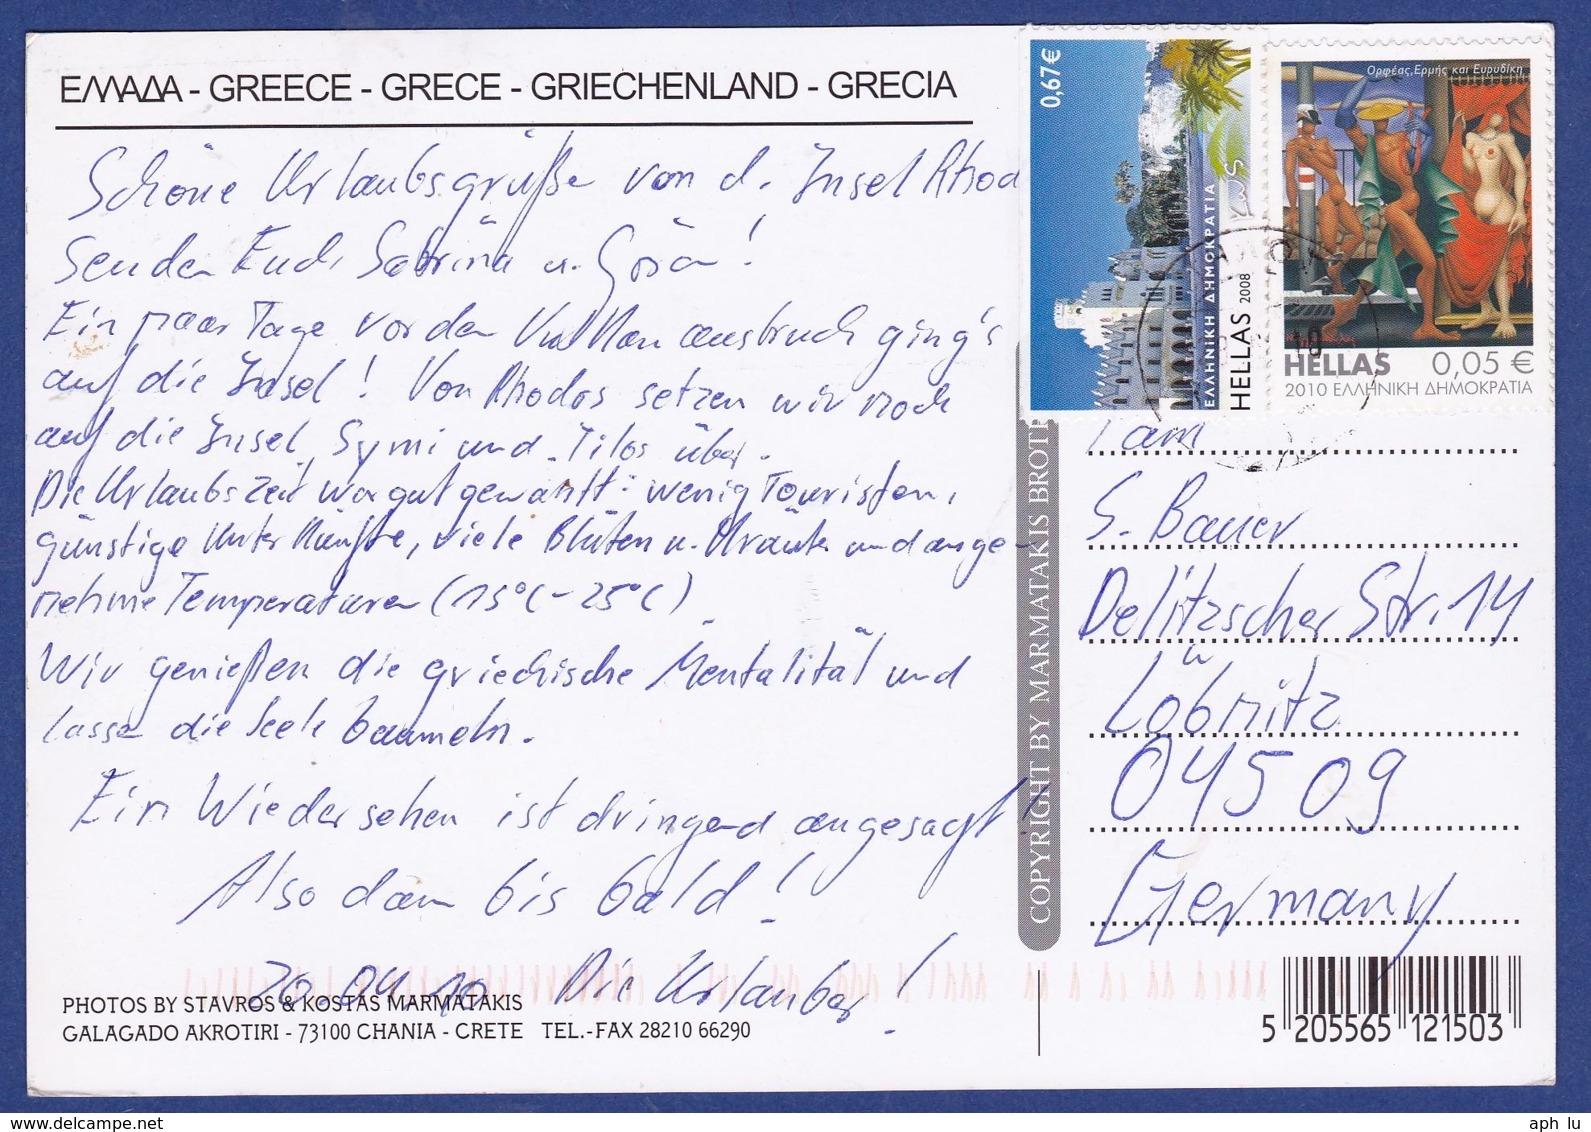 ΕΛΛΑΔΑ - GREECE - GRECE - GRIECHENLAND - GRECIA
Schöne Urlaubsgrüße von d. Insel Rhod
senden Euch Sabrina u.
Ein paar Tage vor dem Vulkanausbruch ging's
auf die Insel! Von Rhodos setzen wir noch
auf die Insel Symi und Tilos über.
Die Urlaubszeit war gut gewählt: wenig Touristen,
günstige Unterkünfte, viele Blüten u. Kräuter und ange-
nehme Temperaturen (15°C - 25°C)
Wir genießen die griechische Mentalität und
lassen die Seele baumeln.
Ein Wiedersehen ist dringend angesagt!
Also dann bis bald!
20.04.10 Die Urlauber!
PHOTOS BY STAVROS & KOSTAS MARMATAKIS
GALAGADO AKROTIRI - 73100 CHANIA - CRETE TEL.-FAX 28210 66290
COPYRIGHT BY MARMATAKIS BROTH
0,67€
ΕΛΛΗΝΙΚΗ ΔΗΜΟΚΡΑΤΙΑ
HELLAS 2008
Κως
Ορφέας, Ερμής και Ευρυδίκη
HELLAS 0,05 €
2010 ΕΛΛΗΝΙΚΗ ΔΗΜΟΚΡΑΤΙΑ
Fam
S. Bauer
Delitzscher Str. 14
Löbnitz
04509
Germany
5 205565 121503
aph lu